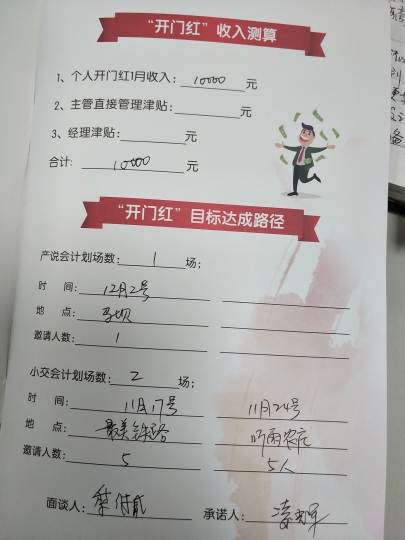 “开门红”收入测算
1、个人开门红1月收入：10000元
2、主管直接管理津贴：元
3、经理津贴：元
合计：10000元
“开门红”目标达成路径
产说会计划场数：1场；
时间：12月2号
地点：马坝
邀请人数：1
小交会计划场数：2场；
时间：11月17号 11月24号
地点：最美铁路 听雨农庄
邀请人数：5 5人
面谈人：
承诺人：